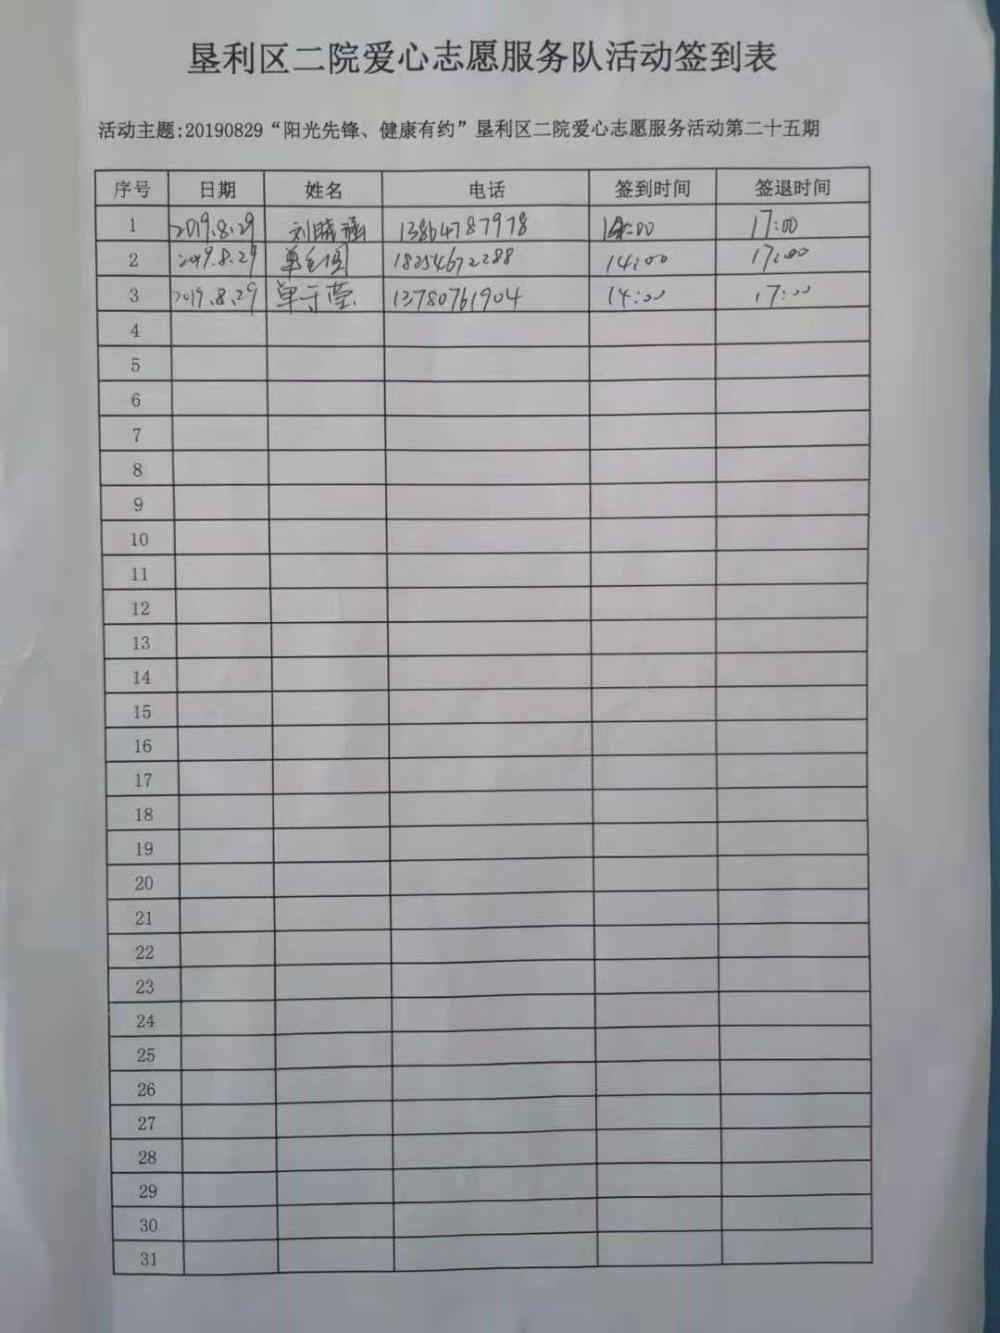 垦利区二院爱心志愿服务队活动签到表
活动主题:20190829“阳光先锋、健康有约”垦利区二院爱心志愿服务活动第二十五期
序号 日期 姓名 电话 签到时间 签退时间
1 2019.8.29 刘晓 13864787978 14:00 17:00
2 2019.8.29 单 18254672288 14:00 17:00
3 2019.8.29 单于莹 13780761904 14:00 17:00
4
5
6
7
8
9
10
11
12
13
14
15
16
17
18
19
20
21
22
23
24
25
26
27
28
29
30
31